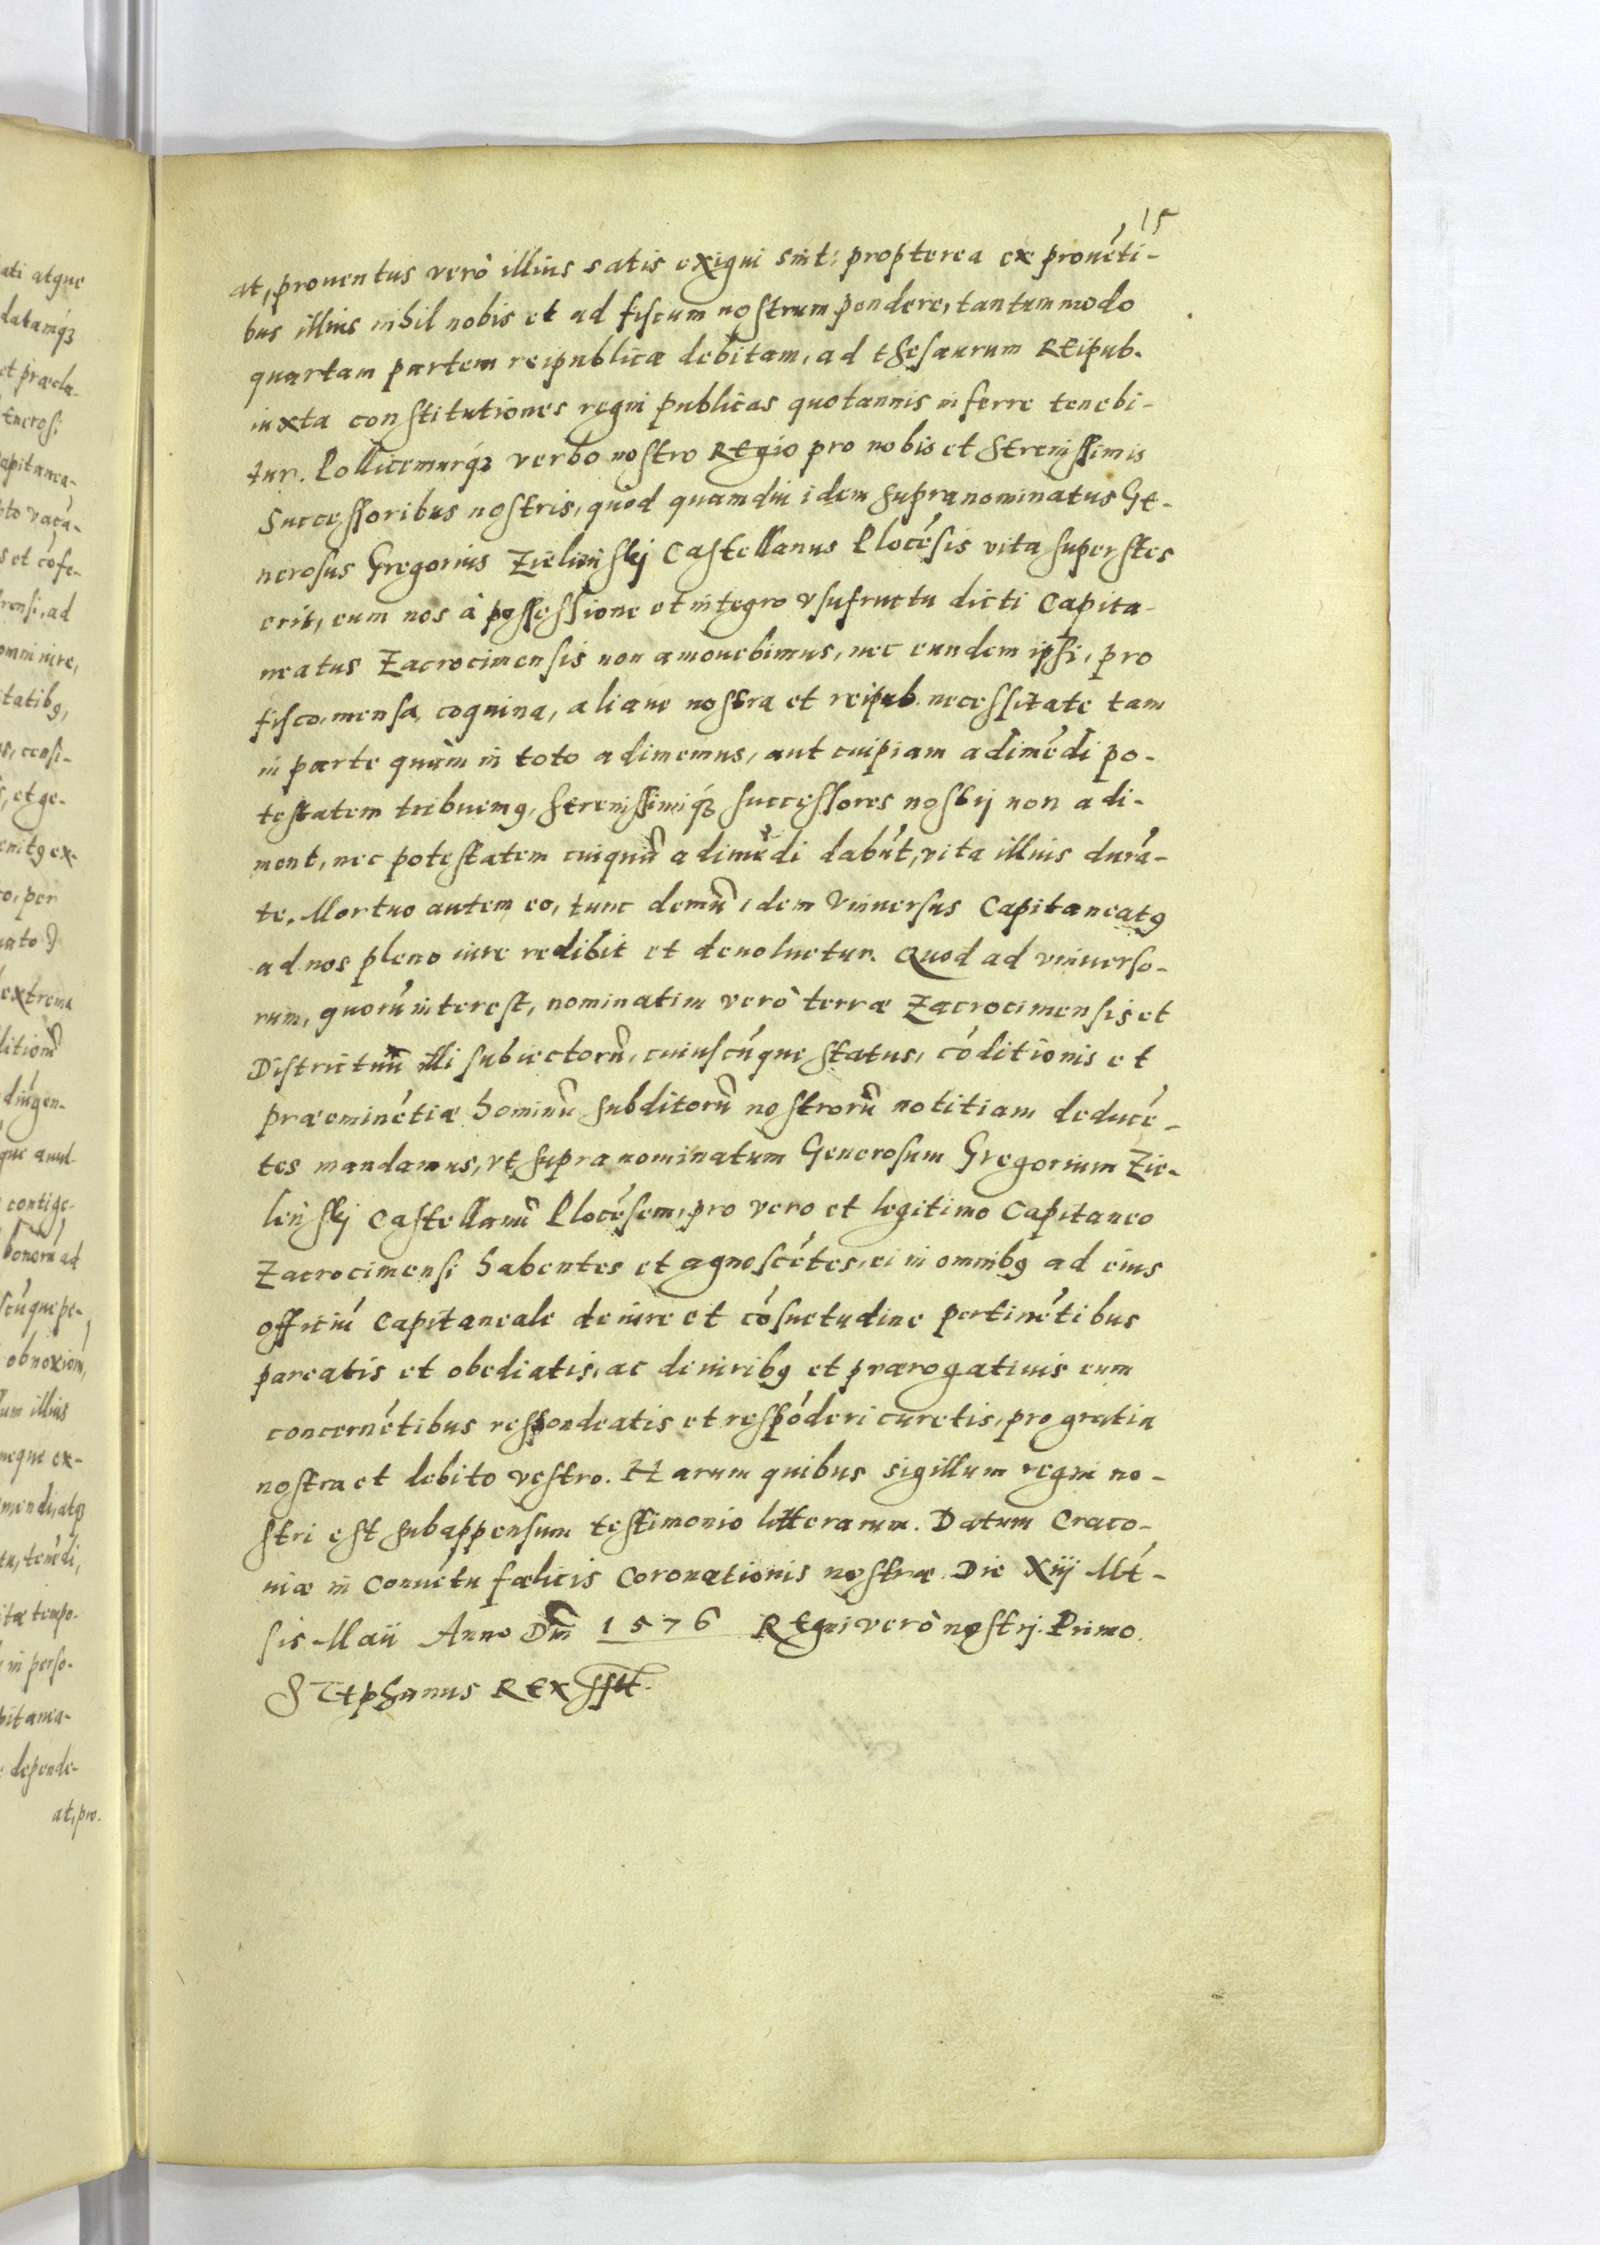 15
at, prouentus verò illius satis exigui sint: propterea ex prouēti-
bus illius nihil nobis et ad fiscum nostrum pendere, tantummodo
quartam partem reipublicæ debitam, ad thesaurum Reipub.
iuxta constitutiones regni publicas quotannis inferre tenebi-
tur. Pollicemurq; verbo nostro Regio pro nobis et Serenissimis
Successoribus nostris, quod quamdiu idem supranominatus Ge-
nerosus Gregorius Zielinskj Castellanus Plocēsis vita superstes
erit, eum nos à possessione et integro vsufructu dicti Capita-
neatus Zacrocimensis non amouebimus, nec eundem ipsi, pro
fisco, mensa, coquina, aliaue nostra et reipub. necessitate tam
in parte quàm in toto adimemus, aut cuipiam adimēdi po-
testatem tribuemꝰ, Serenissimiq; successores nostrj non adi-
ment, nec potestatem cuiquā adimēdi dabūt, vita illius durā-
te. Mortuo autem eo, tunc demū idem Vniuersus Capitaneatꝰ
ad nos pleno iure redibit et deuoluetur. Quod ad vniuerso-
rum, quorū interest, nominatim verò terræ Zacrocimensis et
Districtuū illi subiectorū, cuiuscūque status, cōditionis et
præeminētiæ hominū subditorū nostrorū notitiam deducē-
tes mandamus, vt supranominatum Generosum Gregorium Zie-
linskj Castellanū Plocēsem, pro vero et legitimo Capitaneo
Zacrocimensi habentes et agnoscētes, ei in omnibꝰ ad eius
officiū Capitaneale de iure et cōsuetudine pertinētibus
pareatis et obediatis, ac de iuribꝰ et prærogatiuis eum
concernētibus respondeatis et respōderi curetis, pro gratia
nostra et debito vestro. Harum quibus sigillum regni no-
stri est subappensum testimonio litterarum. Datum Craco-
uiæ in Conuētu fælicis Coronationis nostræ. Die Xiij Mē-
sis Maii Anno Dnī 1576 Regni verò nostrj. Primo.
Stephanus Rex sst.
ati atque
datamq;
et præcla-
enerosi
apitanea-
pto vacā-
s et cōfe-
rensi, ad
omni iure,
tatibꝰ,
s, censi-
, et ge-
co, per
extrema
que aual-
contige-
bonorū ad
scūque pe-
obnoxiorū,
lum illius
neque ex-
mendi, atq;
tu, tenēdi,
itæ tempo-
in perso-
pitanea-
depende-
at, pro.